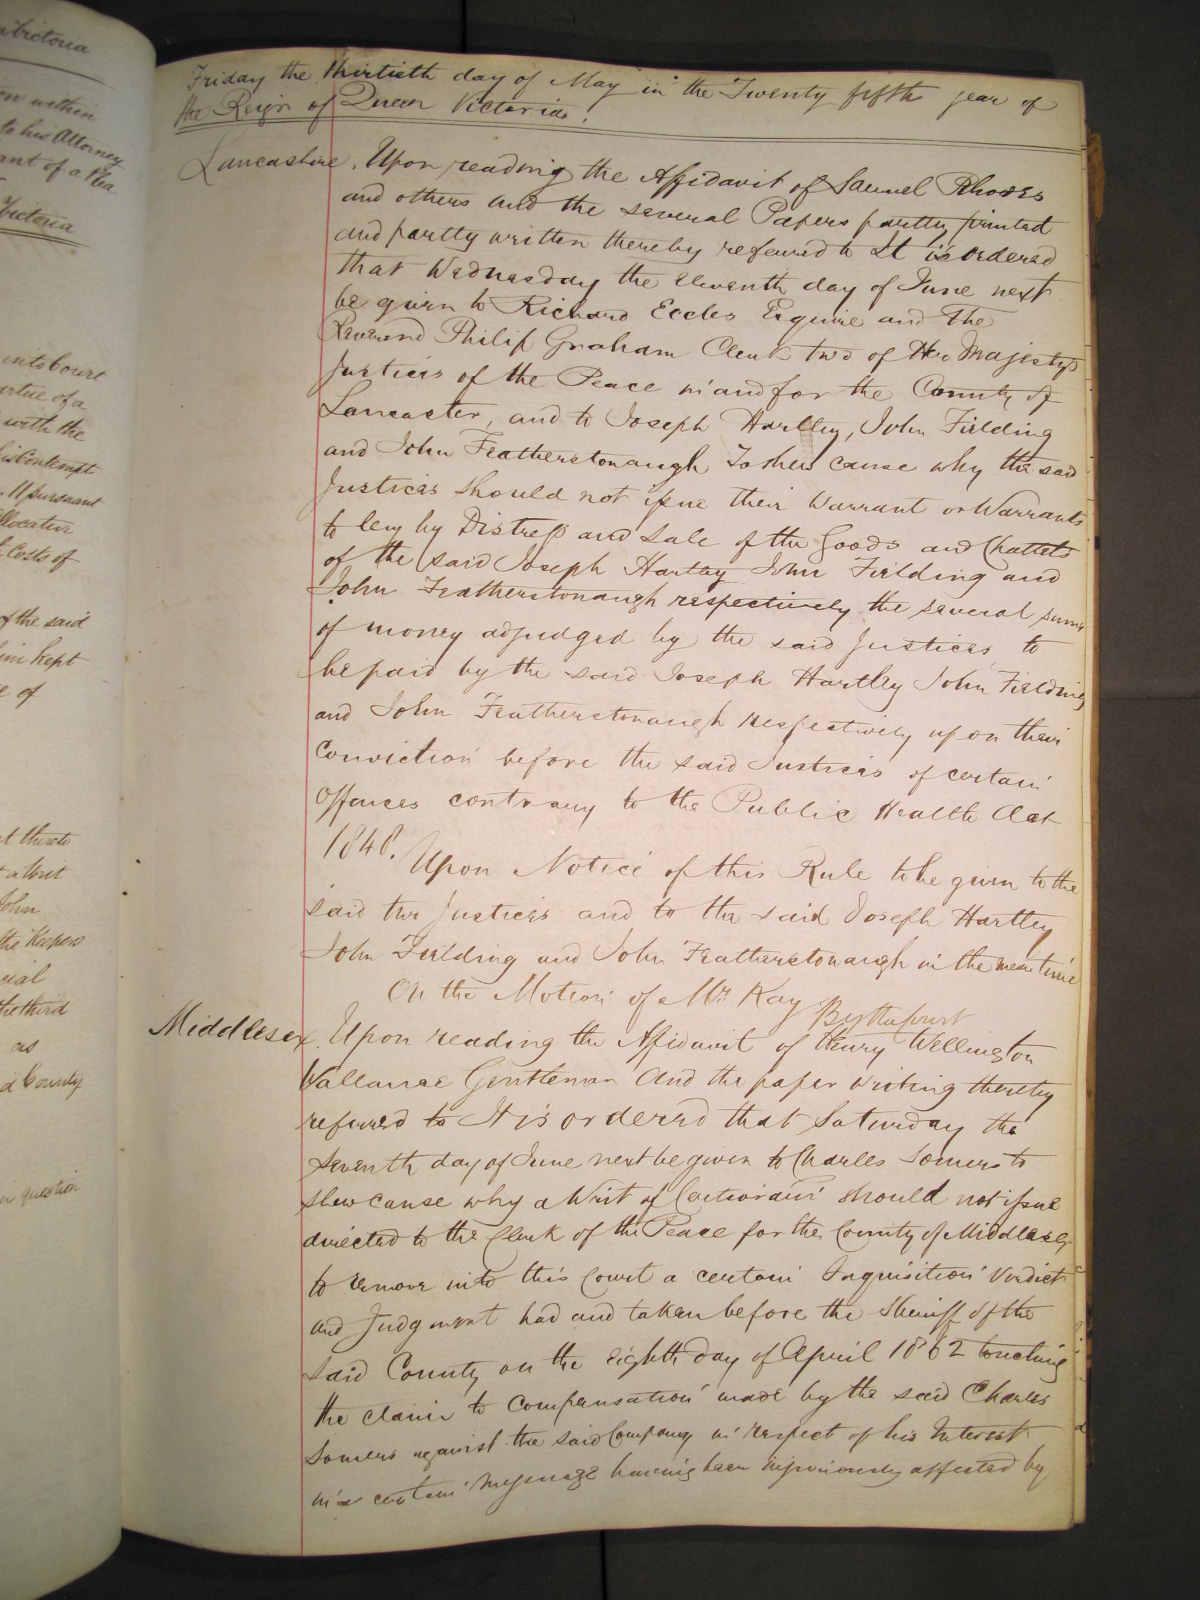 nVictoria
on within
to his Attorney
ant of a Plea
Victoria
into Court
artue of a
with the
his Contempt
pursuant
llocatur
Costs of
of the said
him kept
e of
t thereto
t a Writ
John
the Keepers
cial
the third
as
d County
in question
Friday the thirtieth day of May in the Twenty fifth year of
the Reign of Queen Victoria.
Lancashire. Upon reading the Affidavit of Samuel Rhodes
and others and the several Papers partly printed
and partly written thereby referred to It is ordered
that Wednesday the eleventh day of June next
be given to Richard Eccles Esquire and The
Reverend Philip Graham Clerk two of Her Majestys
Justices of the Peace in and for the County of
Lancaster, and to Joseph Hartley, John Fielding
and John Featherstonaugh To shew cause why the said
Justices should not issue their Warrant or Warrants
to levy by Distress and Sale of the Goods and Chattels
of the said Joseph Hartley John Fielding and
John Featherstonaugh respectively the several sums
of money adjudged by the said Justices to
be paid by the said Joseph Hartley John Fielding
and John Featherstonaugh respectively upon their
Conviction before the said Justices of certain
Offences contrary to the Public Health Act
1848. Upon Notice of this Rule to be given to the
said two Justices and to the said Joseph Hartley
John Fielding and John Featherstonaugh in the mean time
On the Motion of Mr Kay By the Court
Middlesex. Upon reading the Affidavit of Henry Wellington
Vallance Gentleman And the paper writing thereby
referred to It is ordered that Saturday the
seventh day of June next be given to Charles Somers to
shew cause why a Writ of Certiorari should not issue
directed to the Clerk of the Peace for the County of Middlesex
to remove into this Court a certain Inquisition Verdict
and Judgment had and taken before the Sheriff of the
said County on the eighth day of April 1862 touching
the claim to Compensation made by the said Charles
Somers against the said Company in respect of his Interest
in a certain Messuage having been injuriously affected by